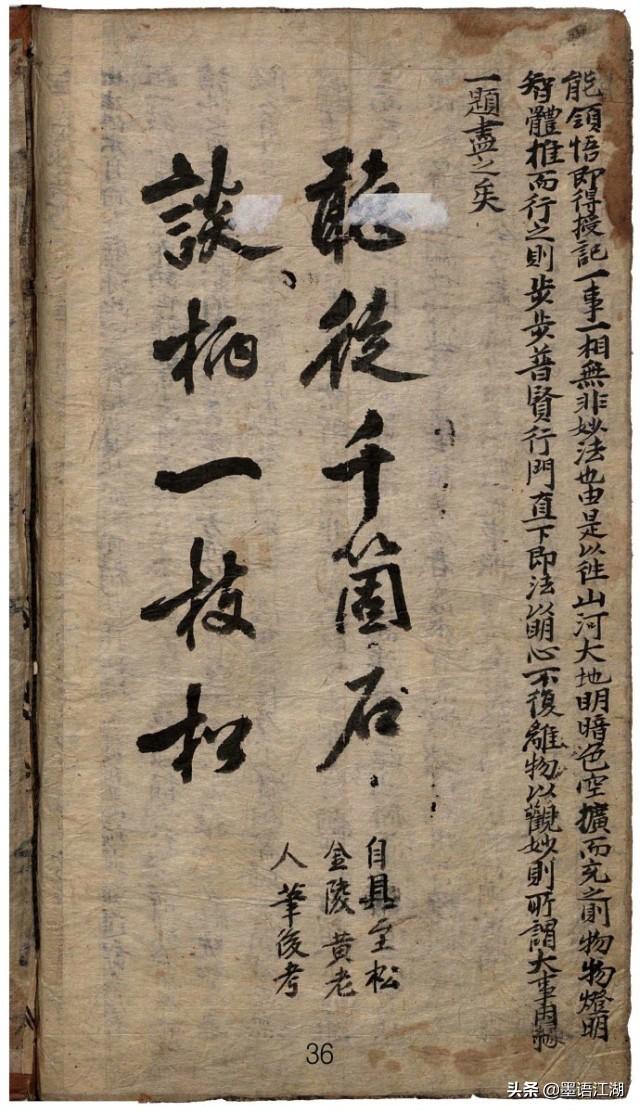 能領悟即得授記一事一相無非妙法也由是以往山河大地明暗色空擴而充之則物物燈明
智體推而行之則步步普賢行門直下即法以明心不復離物以觀妙則所謂大事因緣
一題盡之矣
聽從千箇石
談柄一枝松
自縣至松
金陵黃老
人筆後考
36
头条@墨语江湖